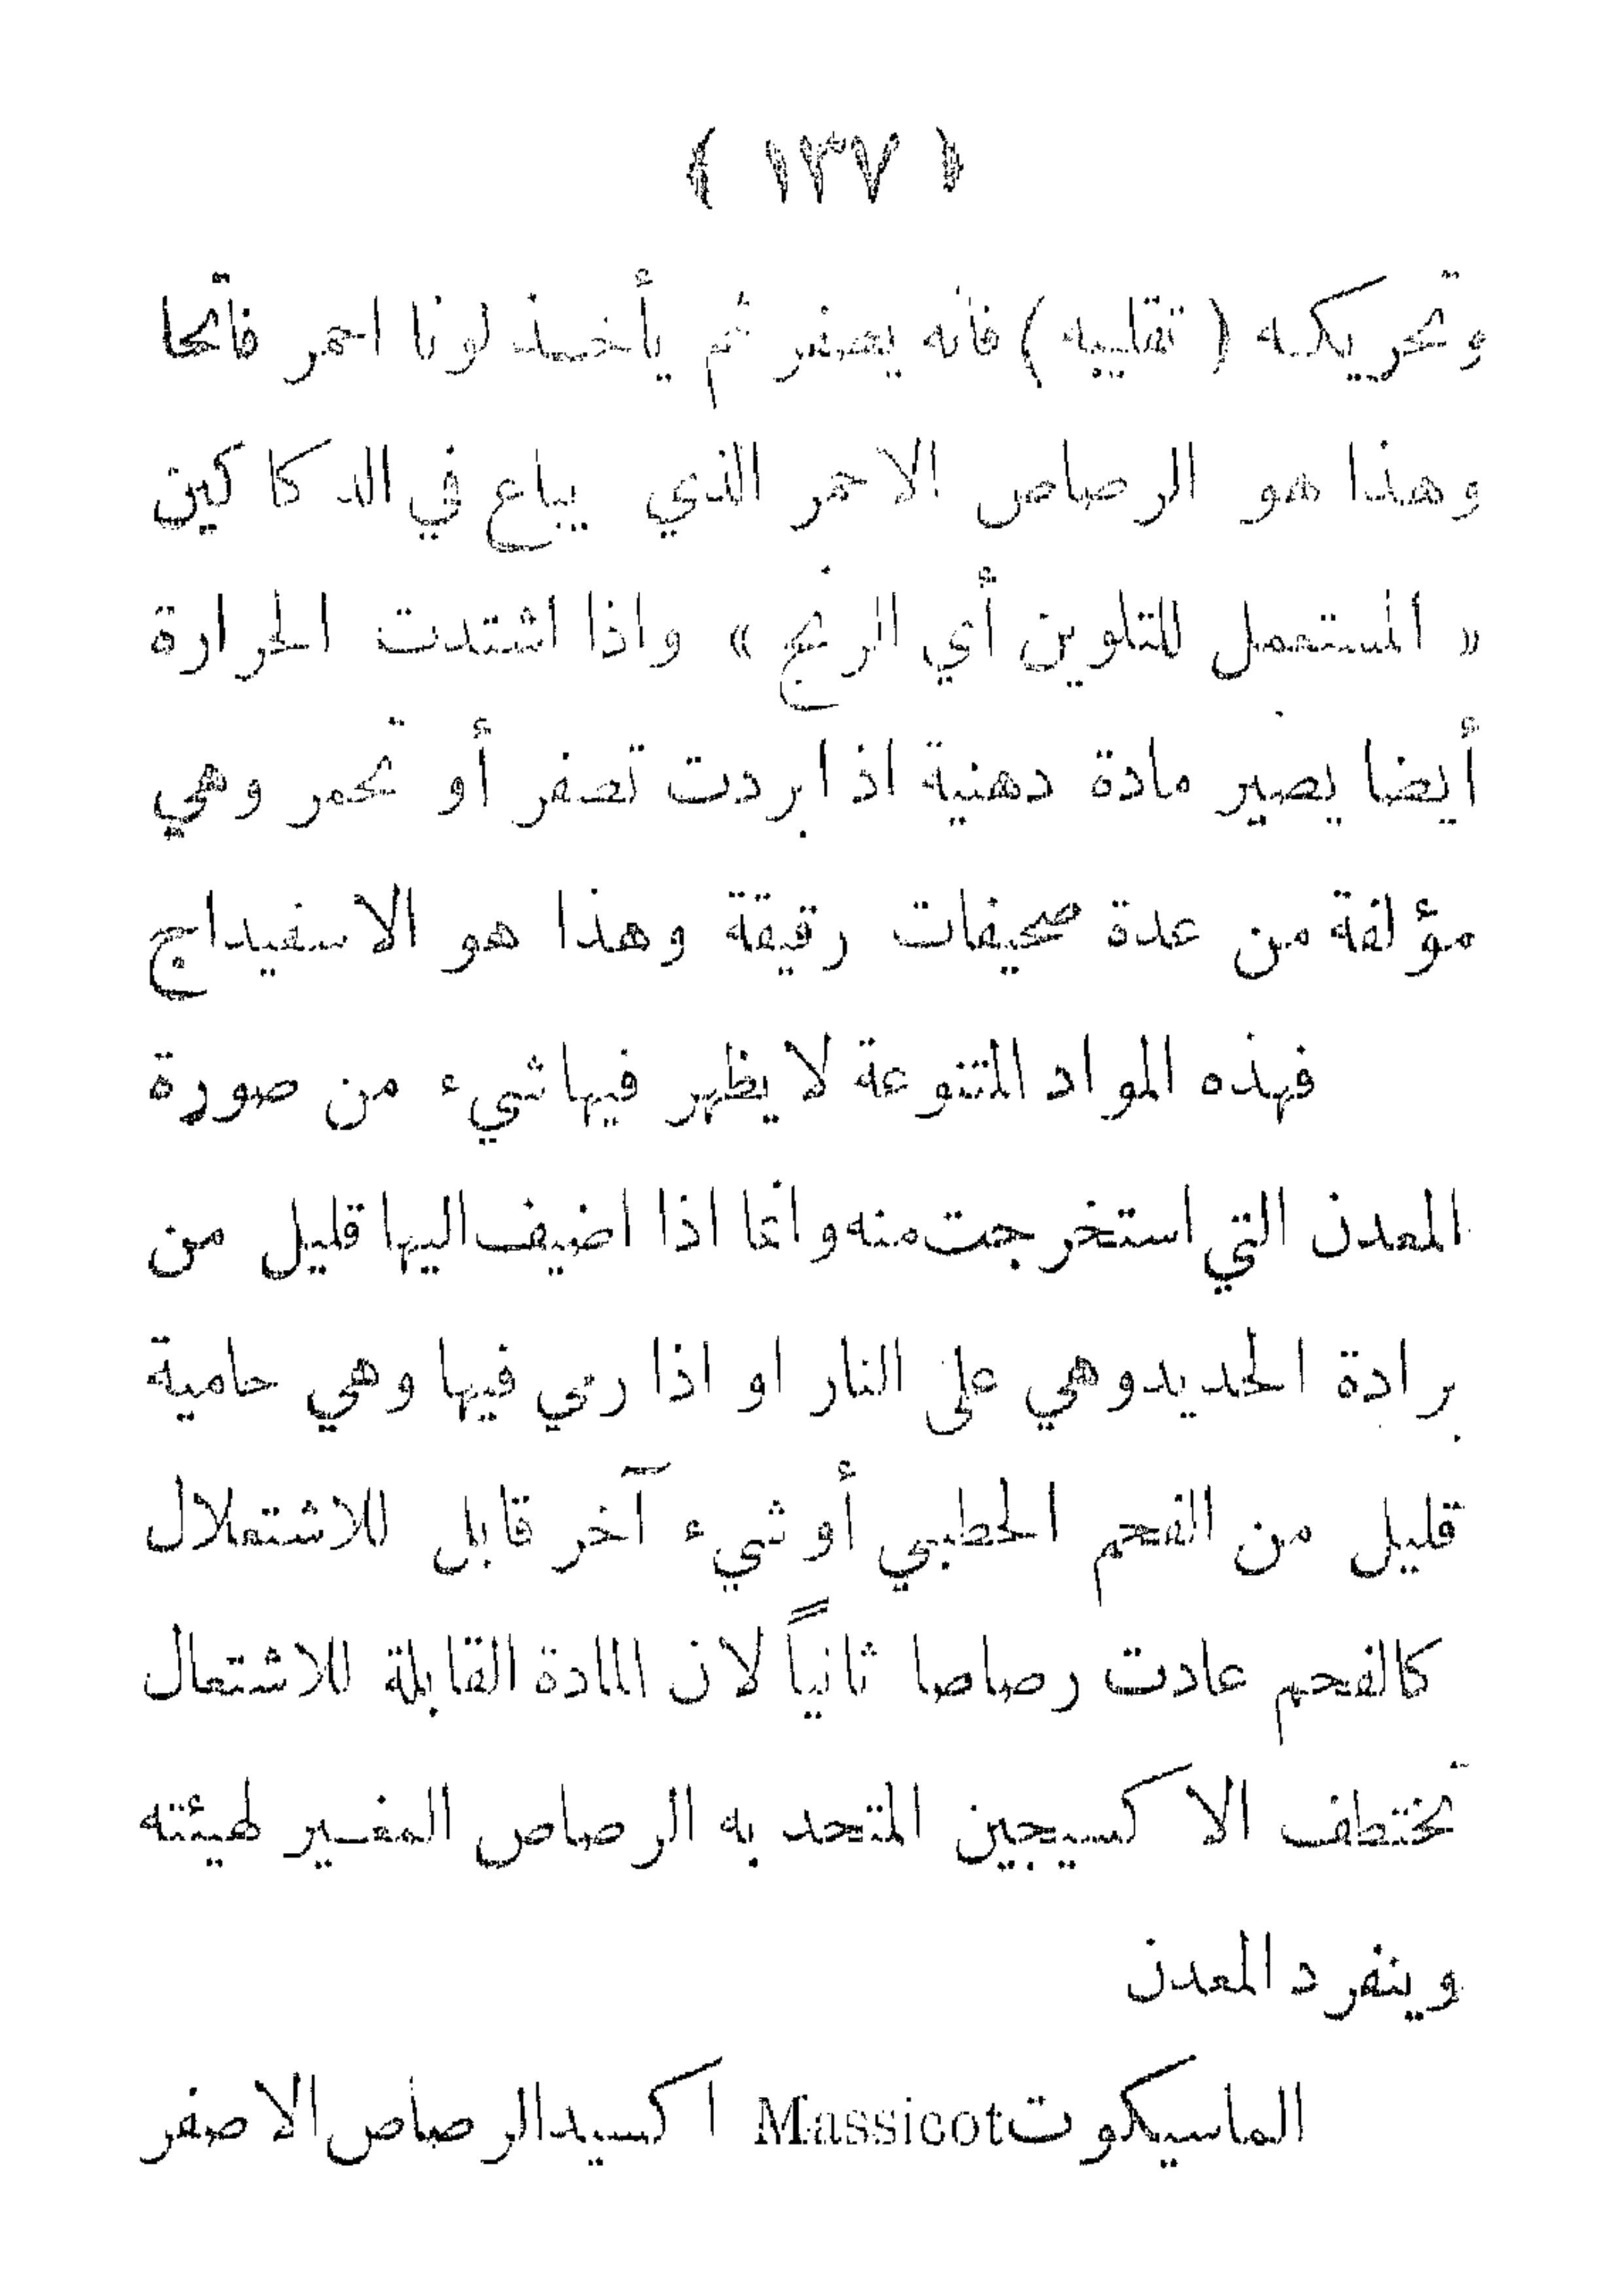 ﴿ ١٣٧ ﴾
وتحريكه ( تقليبه ) فانه يصفر ثم يأخذ لونا احمر فاتحا
وهذا هو الرصاص الاحمر الذي يباع في الدكاكين
« المستعمل للتلوين أي الزنج » واذا اشتدت الحرارة
أيضا يصير مادة دهنية اذا بردت تصفر أو تحمر وهي
مؤلفة من عدة صحيفات رقيقة وهذا هو الاسفيداج
فهذه المواد المتنوعة لا يظهر فيها شيء من صورة
المعدن التي استخرجت منه وانما اذا اضيف اليها قليل من
برادة الحديد وهي على النار او اذا رمي فيها وهي حامية
قليل من الفحم الحطبي أو شيء آخر قابل للاشتعلال
كالفحم عادت رصاصا ثانياً لان المادة القابلة للاشتعال
تختطف الاكسيجين المتحد به الرصاص المغير لهيئته
وينفرد المعدن
الماسيكوت Massicot اكسيد الرصاص الاصفر